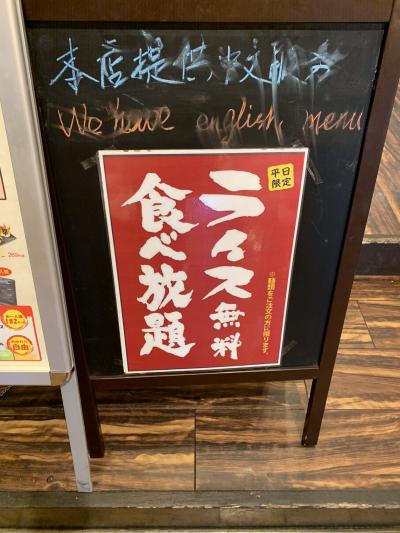 本店提供中文
We have english menu
平日
限定
ライス無料
食べ放題
※麺類をご注文の方に限ります。
自由